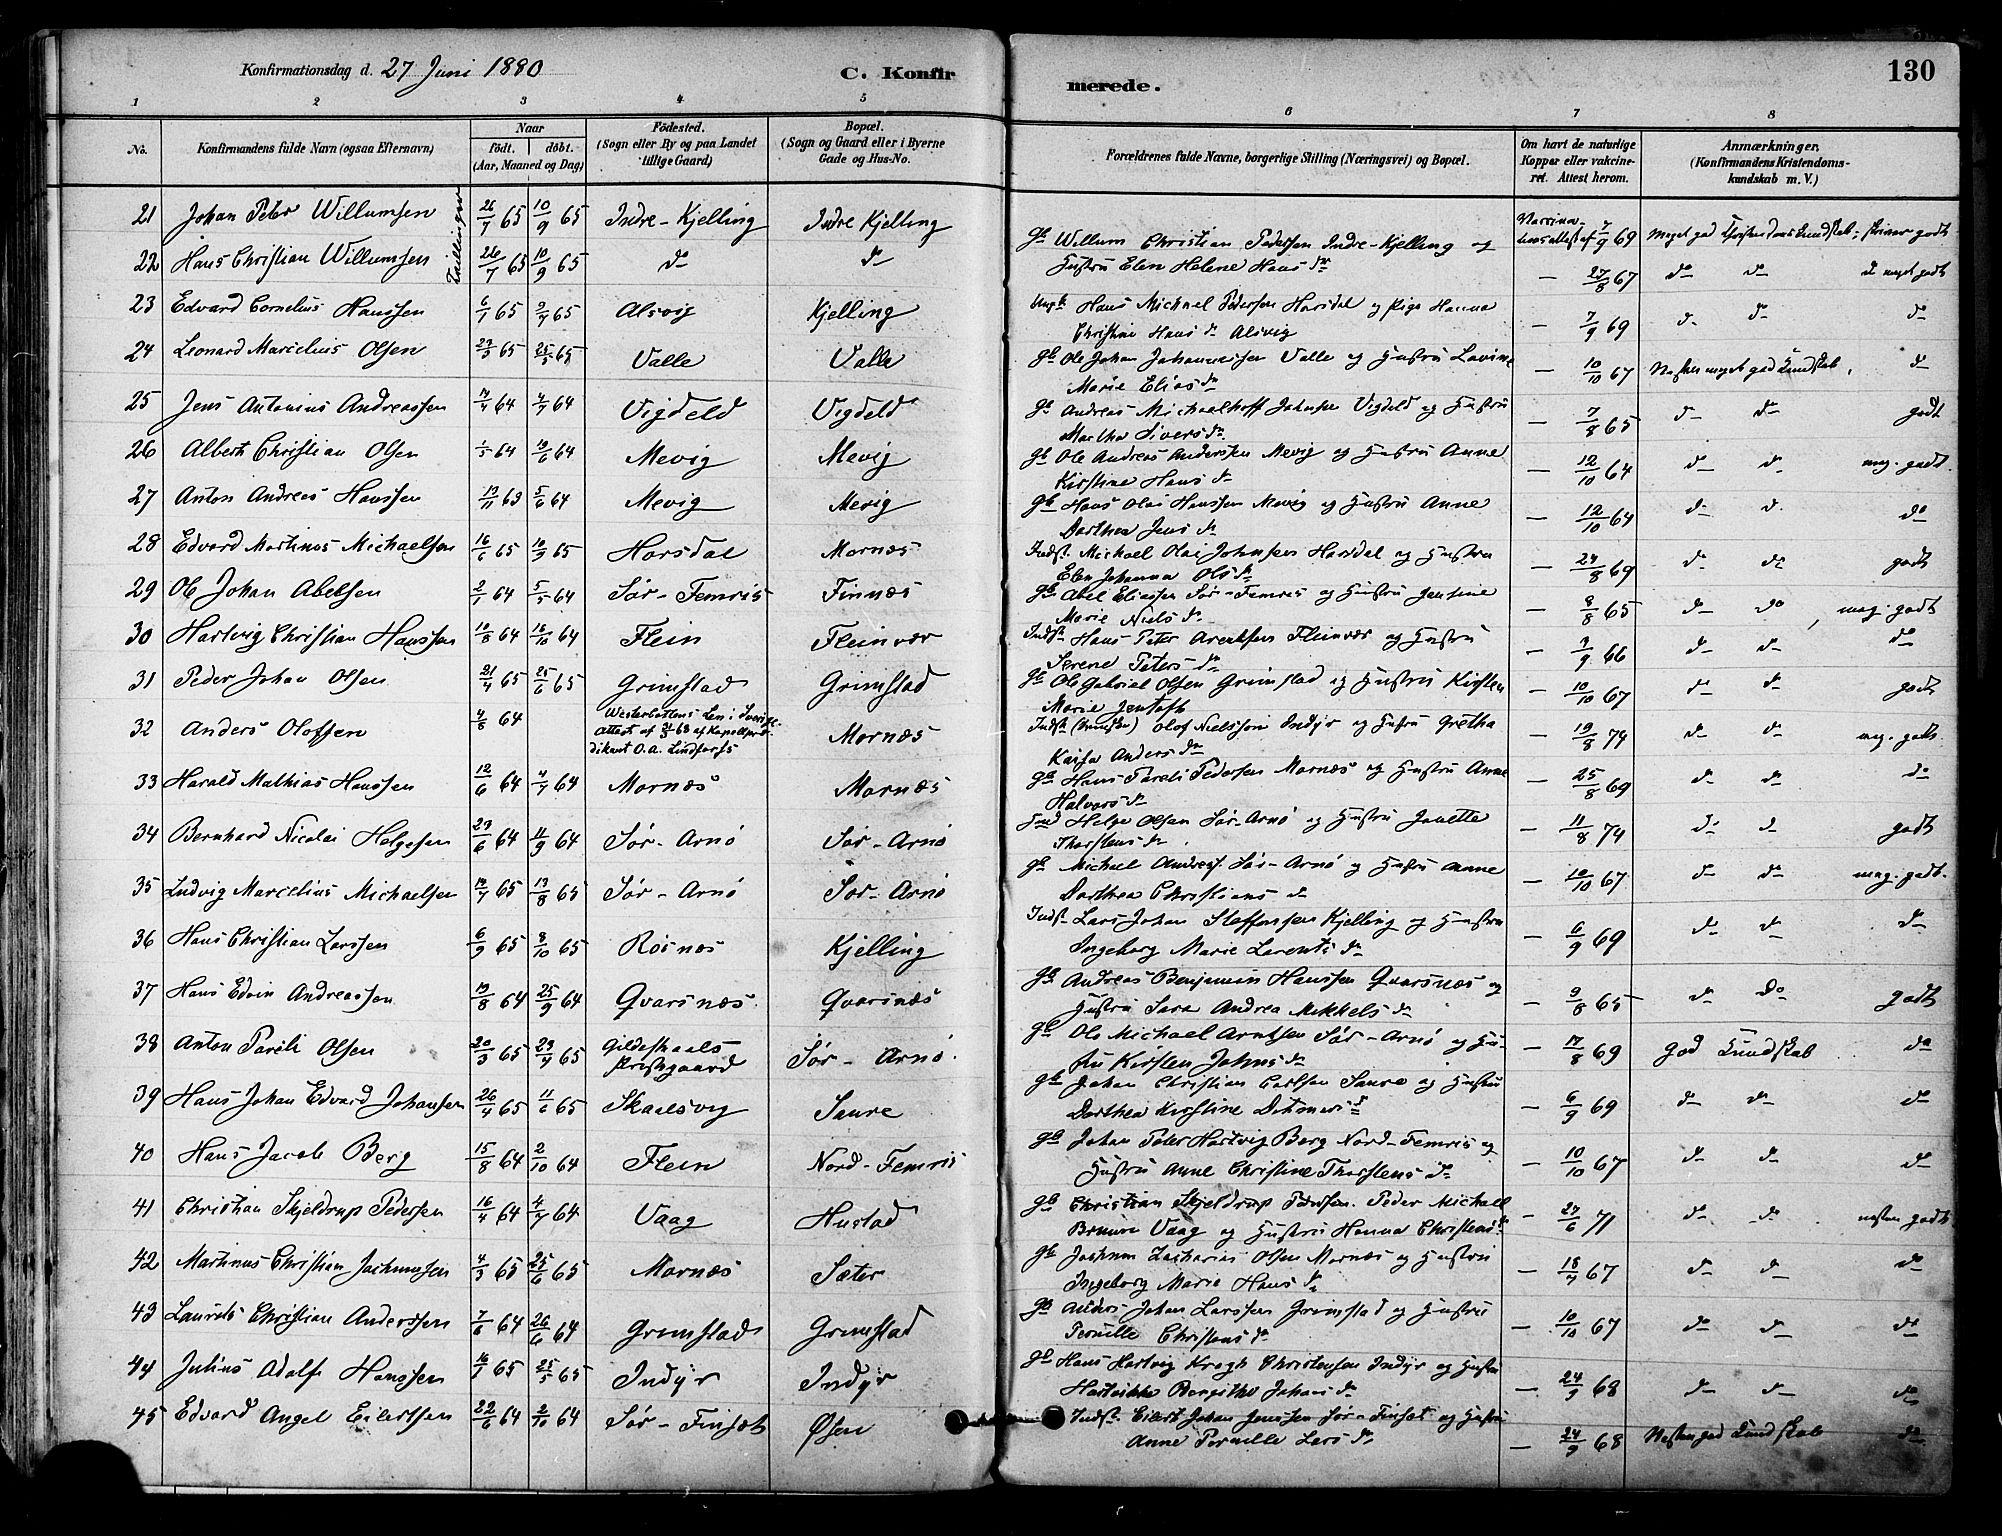 Konfirmationsdag d. 27 Juni 1880
C. Konfir
merede.
130
1 2 3 4 5 6 7 8
No. Konfirmandens fulde Navn (ogsaa Efternavn) Naar født. døbt. (Aar, Maaned og Dag) Fødested. (Sogn eller By og paa Landet tillige Gaard) Bopæl. (Sogn og Gaard eller i Byerne Gade og Hus-No. Forældrenes fulde Navne, borgerlige Stilling (Næringsvei) og Bopæl. Om havt de naturlige Kopper eller vakcineret. Attest herom. Anmærkninger. (Konfirmandens Kristendomskundskab m. V.)
21 Johan Peter Willumsen Tvillinger 26/7 65 10/9 65 Indre-Kjelling Indre Kjelling Gb Willum Christian Pedersen Indre-Kjelling og 7/9 69 Meget god Christendomskundskab; skriver godt
22 Hans Christian Willumsen 26/7 65 10/9 65 do do Hustru Elen Helene Hans dr — 27/8 67 do do do meget godt
23 Edvard Cornelius Hanssen 6/1 65 2/7 65 Alsvig Kjelling Ungk Hans Michael Pedersen Horsdal og Pige Hanna
Christine Hans dr Alsvig — 7/9 69 do do do
24 Leonard Marcelius Olsen 65 65 Valle Valle Gb Ole Johan Johannessen Valle og Hustru Lovine
Marie Elias dr — 10/10 67 Næsten meget god Kundskab, do
25 Jens Antonius Andreassen 64 64 Vigdeld Vigdeld Gb Andreas Michaelhoff Johnsen Vigdeld og Hustru
Martha Sivers dr — 7/8 65 do do godt
26 Albert Christian Olsen 1/5 64 19/6 64 Mevig Mevig Gb Ole Andreas Anderssen Mevig og Hustru Anne
Kirstine Hans dr — 12/10 64 do do meg. godt
27 Anton Andreas Hanssen 13/11 63 5/6 64 Mevig Mevig Gb Hans Olai Hanssen Mevig og Hustru Anne
Dorthea Jens dr — 12/10 64 do do do
28 Edvard Martinus Michaelsen 16/6 65 10/9 65 Horsdal Mornæs Indst. Michael Olai Johnsen Horsdal og Hustru
Elen Johanna Ols dr — 24/8 69 do do godt
29 Ole Johan Abelsen 2/1 64 5/5 64 Sør-Femris Finnæs Gb Abel Eliassen Sør-Femris og Hustru Jensine
Marie Niels dr — 8/8 65 do do meg. godt
30 Hartvig Christian Hanssen 10/8 64 16/10 64 Flein Fleinvær Indst. Hans Peter Arentsen Fleinvær og Hustru
Serene Peters dr — 3/9 66 do do do
31 Peder Johan Olsen 21/4 65 25/6 65 Grimstad Grimstad Gb Ole Gabriel Olsen Grimstad og Hustru Kirsten
Marie Jentoft — 10/10 67 do do godt
32 Anders Olofsen 4/8 64 Westerbottens Len i Sverige Attest af 68 af Kapellpredikant O.A. Lindfors Mornæs Indst. (svensken) Olof Nielsson Indyr og Hustru Gretha
Kajsa Anders dr — 19/8 74 do do meg. godt
33 Harald Mathias Hanssen 12/6 64 4/7 64 Mornæs Mornæs Gb Hans Pareli Pedersen Mornæs og Hustru Anne
Halvors dr — 25/8 69 do do do
34 Bernhard Nicolai Helgesen 23/6 64 11/9 64 Sør-Arnø Sør-Arnø Ind Helge Olsen Sør-Arnø og Hustru Jonette
Thorstens dr — 11/8 74 do do godt
35 Ludvig Marcelius Michaelsen 65 13/8 65 Sør-Arnø Sør-Arnø Gb Michael Andreas. Sør-Arnø og Hustru Anne
Dorthea Christians dr — 10/10 67 do do meg. godt.
36 Hans Christian Larssen 6/9 65 8/10 65 Røsnæs Kjelling Indst. Lars Johan Steffensen Kjelling og Hustru
Ingeborg Marie Lorents dr — 6/9 69 do do do
37 Hans Edvin Andreassen 19/8 64 25/9 64 Qvarsnæs Qvarsnæs Gb Andreas Benjamin Hanssen Qvarsnæs og
Hustru Sara Andrea Mikkels dr — 9/8 65 do do godt
38 Anton Pareli Olsen 20/3 65 23/4 65 Gildeskaals Prestgaard Sør-Arnø Gb Ole Michael Arntsen Sør-Arnø og Hu-
stru Kirsten Johns dr — 17/8 69 God Kundskab do
39 Hans Johan Edvard Johansen 26/4 65 11/6 65 Skaalsvig Saure Gb Johan Christian Carlsen Saure og Hustru
Dorthea Kirstine Ditmers dr — 6/9 69 do do do
40 Hans Jacob Berg 15/8 64 2/10 64 Flein Nord-Femris Gb Johan Peter Hartvig Berg Nord-Femris og
Hustru Anne Christine Thorstens dr — 10/10 67 do do do
41 Christian Skjeldrup Pedersen 16/4 64 4/7 64 Vaag Hustad Gb Christian Skjeldrup Pedersen. Peder Michael
Bruun Vaag og Hustru Hanna Christens dr — 27/6 71 do do næsten godt
42 Martinus Christian Jochumsen 4/3 65 25/6 65 Mornæs Sæter Gb Jochum Zacharias Olsen Mornæs og Hustru
Ingeborg Marie Hans dr — 18/7 67 do do do
43 Laurits Christian Anderssen 7/6 64 26/6 64 Grimstad Grimstad Gb Anders Johan Larssen Grimstad og Hustru
Pernille Christens dr — 10/10 67 do do do
44 Julius Adolf Hanssen 16/1 65 25/5 65 Indyr Indyr Gb Hans Hartvig Krogh Christensen Indyr og Hustru
Hartvikke Bergithe Johans dr — 24/9 68 do do do
45 Edvard Angel Eilertsen 22/6 64 2/10 64 Sør-Finsæt Øsen Indst. Eilert Johan Jenssen Sør-Finsæt og Hustru
Anne Pernille Lars dr — 24/9 68 Næsten god Kundskab do